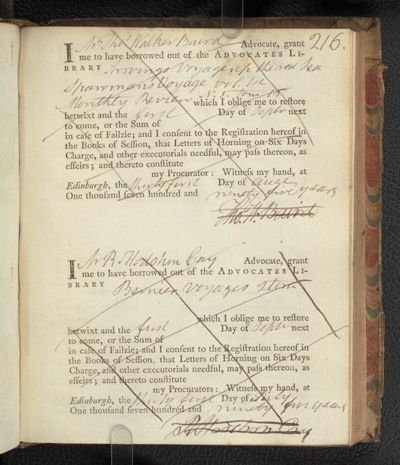 216.
I Mr Thos Walker Baird Advocate, grant
me to have borrowed out of the ADVOCATES LI-
BRARY Irwings Voyage up the red Sea
Sparrmans Voyage vol
Monthly Review which I oblige me to restore
betwixt and the first Day of Septr next
to come, or the Sum of
in case of Failzie; and I consent to the Registration hereof in
the Books of Session, that Letters of Horning on Six Days
Charge, and other executorials needful, may pass thereon, as
effeirs; and thereto constitute
my Procurator: Witness my hand, at
Edinburgh, the thirty first Day of
One thousand seven hundred and ninety five years
Tho. W. Baird
I Mr R. Hodshon Cay Advocate, grant
me to have borrowed out of the ADVOCATES LI-
BRARY Bernier voyages
which I oblige me to restore
betwixt and the first Day of Septr next
to come, or the Sum of
in case of Failzie; and I consent to the Registration hereof in
the Books of Session, that Letters of Horning on Six Days
Charge, and other executorials needful, may pass thereon, as
effeirs; and thereto constitute
my Procurators: Witness my hand, at
Edinburgh, the thirty first Day of July
One thousand seven hundred and ninety five years
R Hodshon Cay